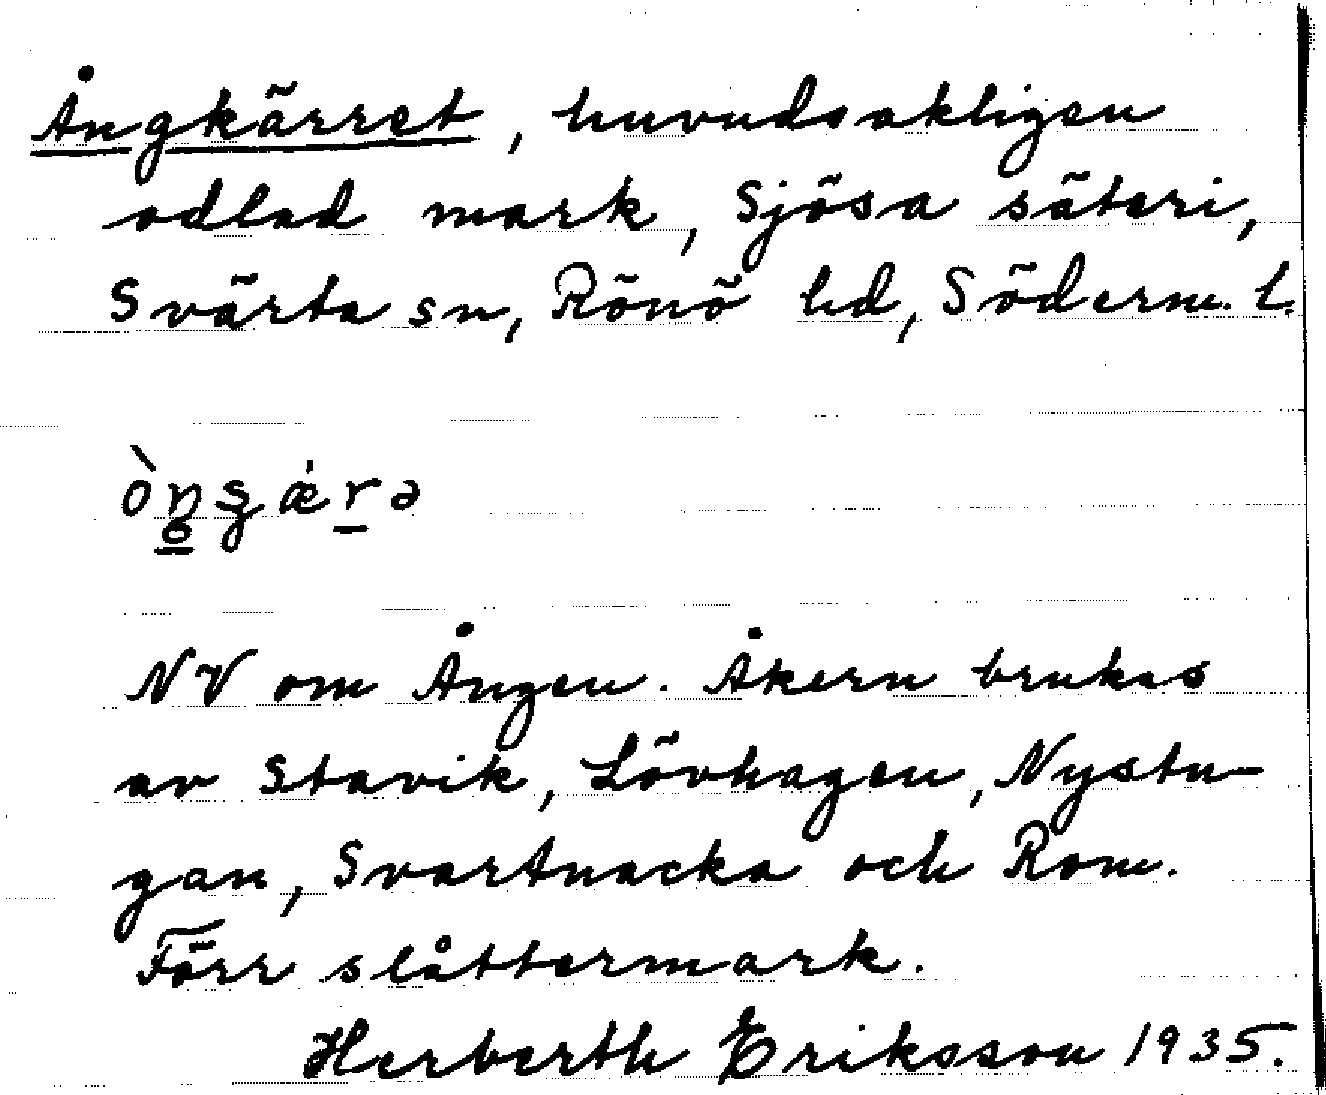 Ångkärret, huvudsakligen
odlad mark, Sjösa säteri,
Svärta sn, Rönö hd, Söderm. l.
NV om Ången. Åkern brukas
av Stavik, Lövhagen, Nystu-
gan, Svartnacka och Rom.
Förr slåttermark.
Herberth Eriksson 1935.